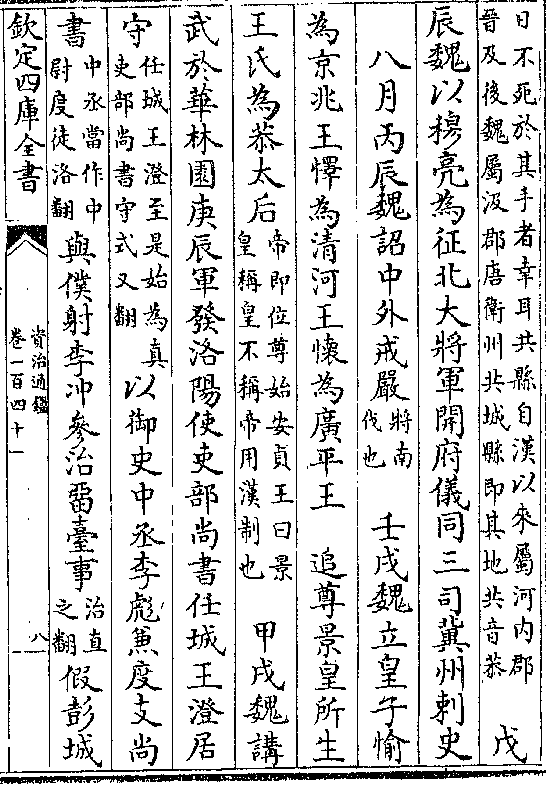 日不死於其手者幸耳共縣自漢以來屬河内郡
晉及後魏屬汲郡唐衛州共城縣即其地共音恭 戊
辰魏以穆亮為征北大將軍開府儀同三司冀州刺史
八月丙辰魏詔中外戒嚴將南伐也 壬戌魏立皇子愉
為京兆王懌為清河王懷為廣平王 追尊景皇所生
王氏為恭太后帝即位尊始安貞王曰景皇稱皇不稱帝用漢制也 甲戌魏講
武於華林園庚辰軍發洛陽使吏部尚書任城王澄居
守任城王澄至是始為真吏部尚書守式又翻以御史中丞李彪兼度支尚
書中丞當作中尉度徒洛翻與僕射李冲參治畱臺事治直之翻假彭城
欽定四庫全書
資治通鑑
卷一百四十一
八